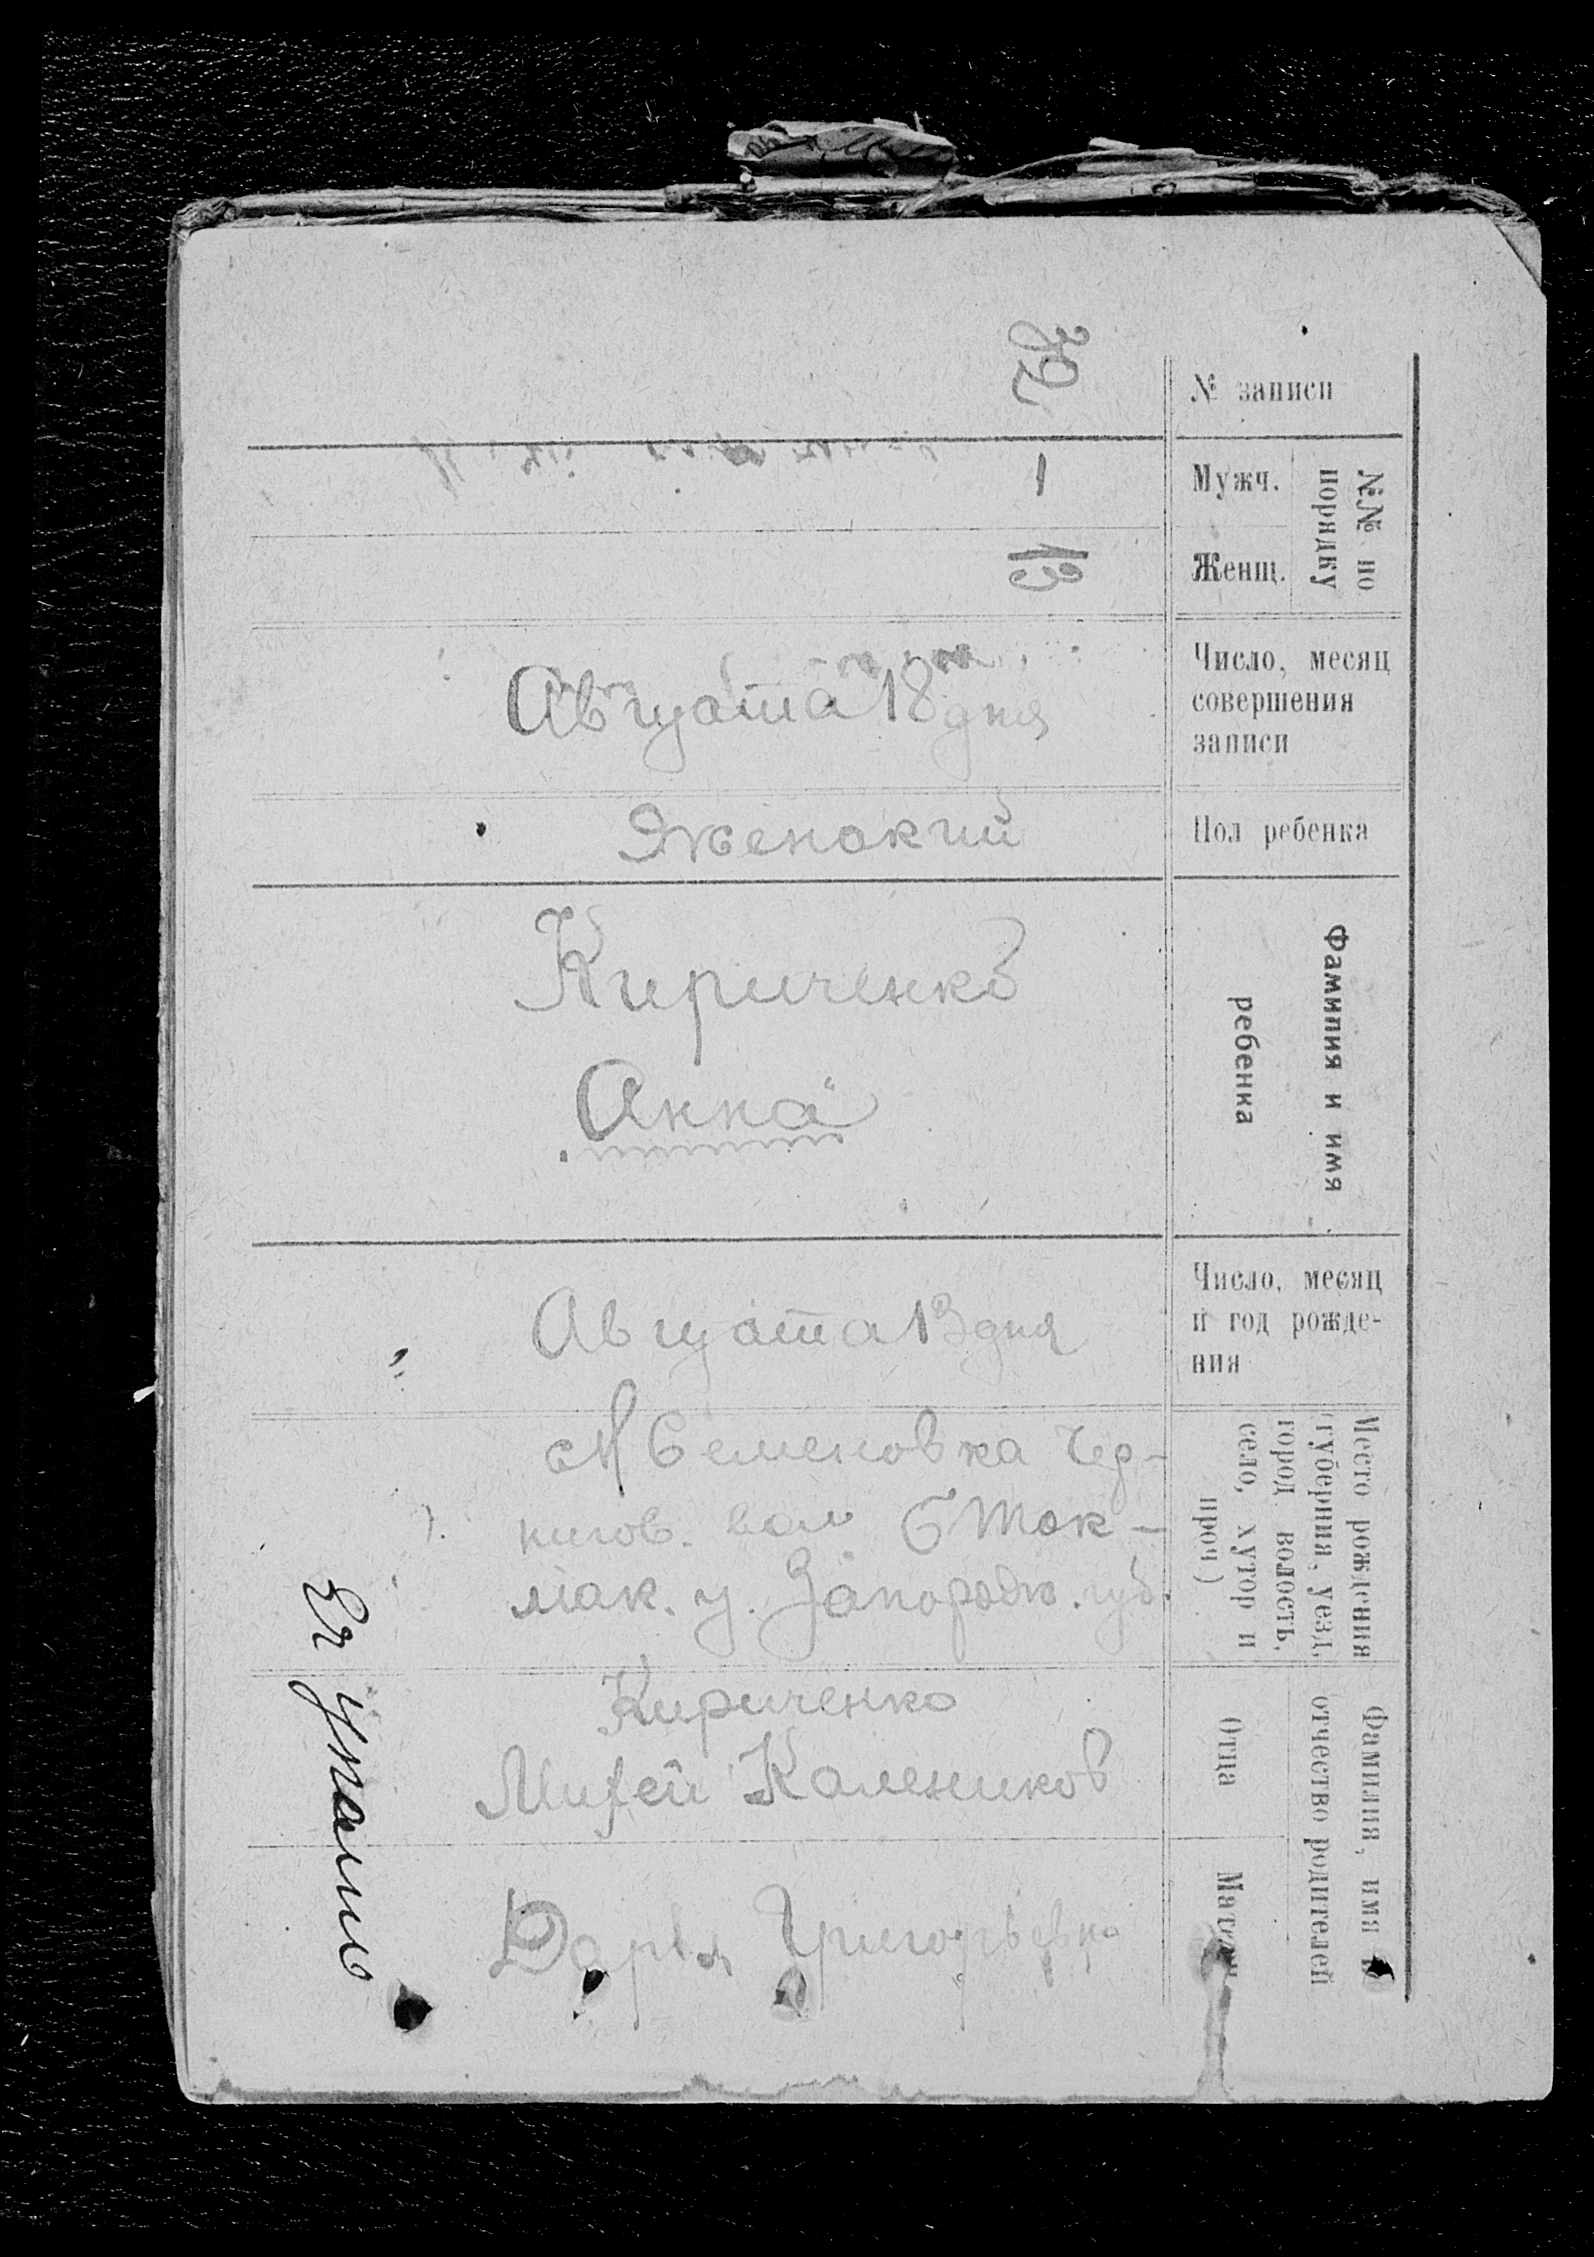 № записи
32
№№ по
порядку
Мужч.
1
Женщ.
13
Число, месяц
совершения
записи
Августа 18 дня
Пол ребенка
Женский
Фамилия и имя
ребенка
Кириченко
Анна
Число, месяц
и год рожде-
ния
Августа 13 дня
Место рождения
(губерния, уезд,
город волость,
село, хутор и
проч)
Семеновка Чер-
нигов. вол Б Ток-
мак. у. Запорож. губ.
Фамилия, имя и
отчество родителей
Отца
Кириченко
Михей Калеников
Матери
Дарья Григорьевна